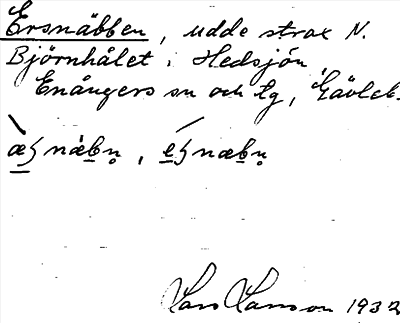 Ersnäbben, udde strax N.
Björnhålet i Hedsjön
Enångers sn och tg, Gävleb.
næbn̥ , næbn̥
Lars Larsson 1932